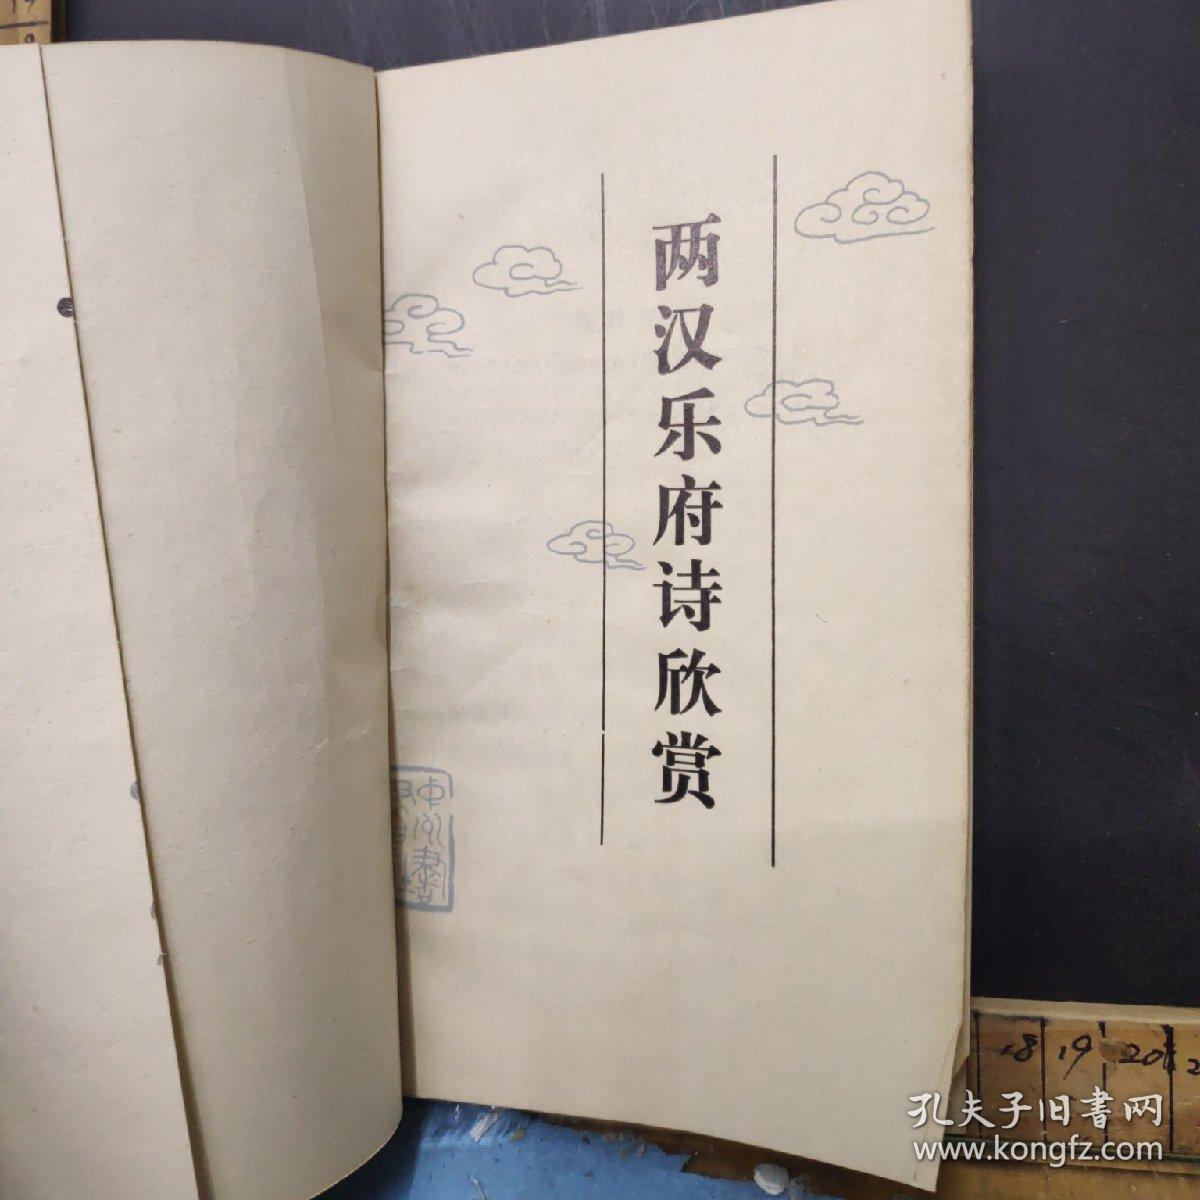 两汉乐府诗欣赏
中州書
18 19 20
孔夫子旧書网
www.kongfz.com